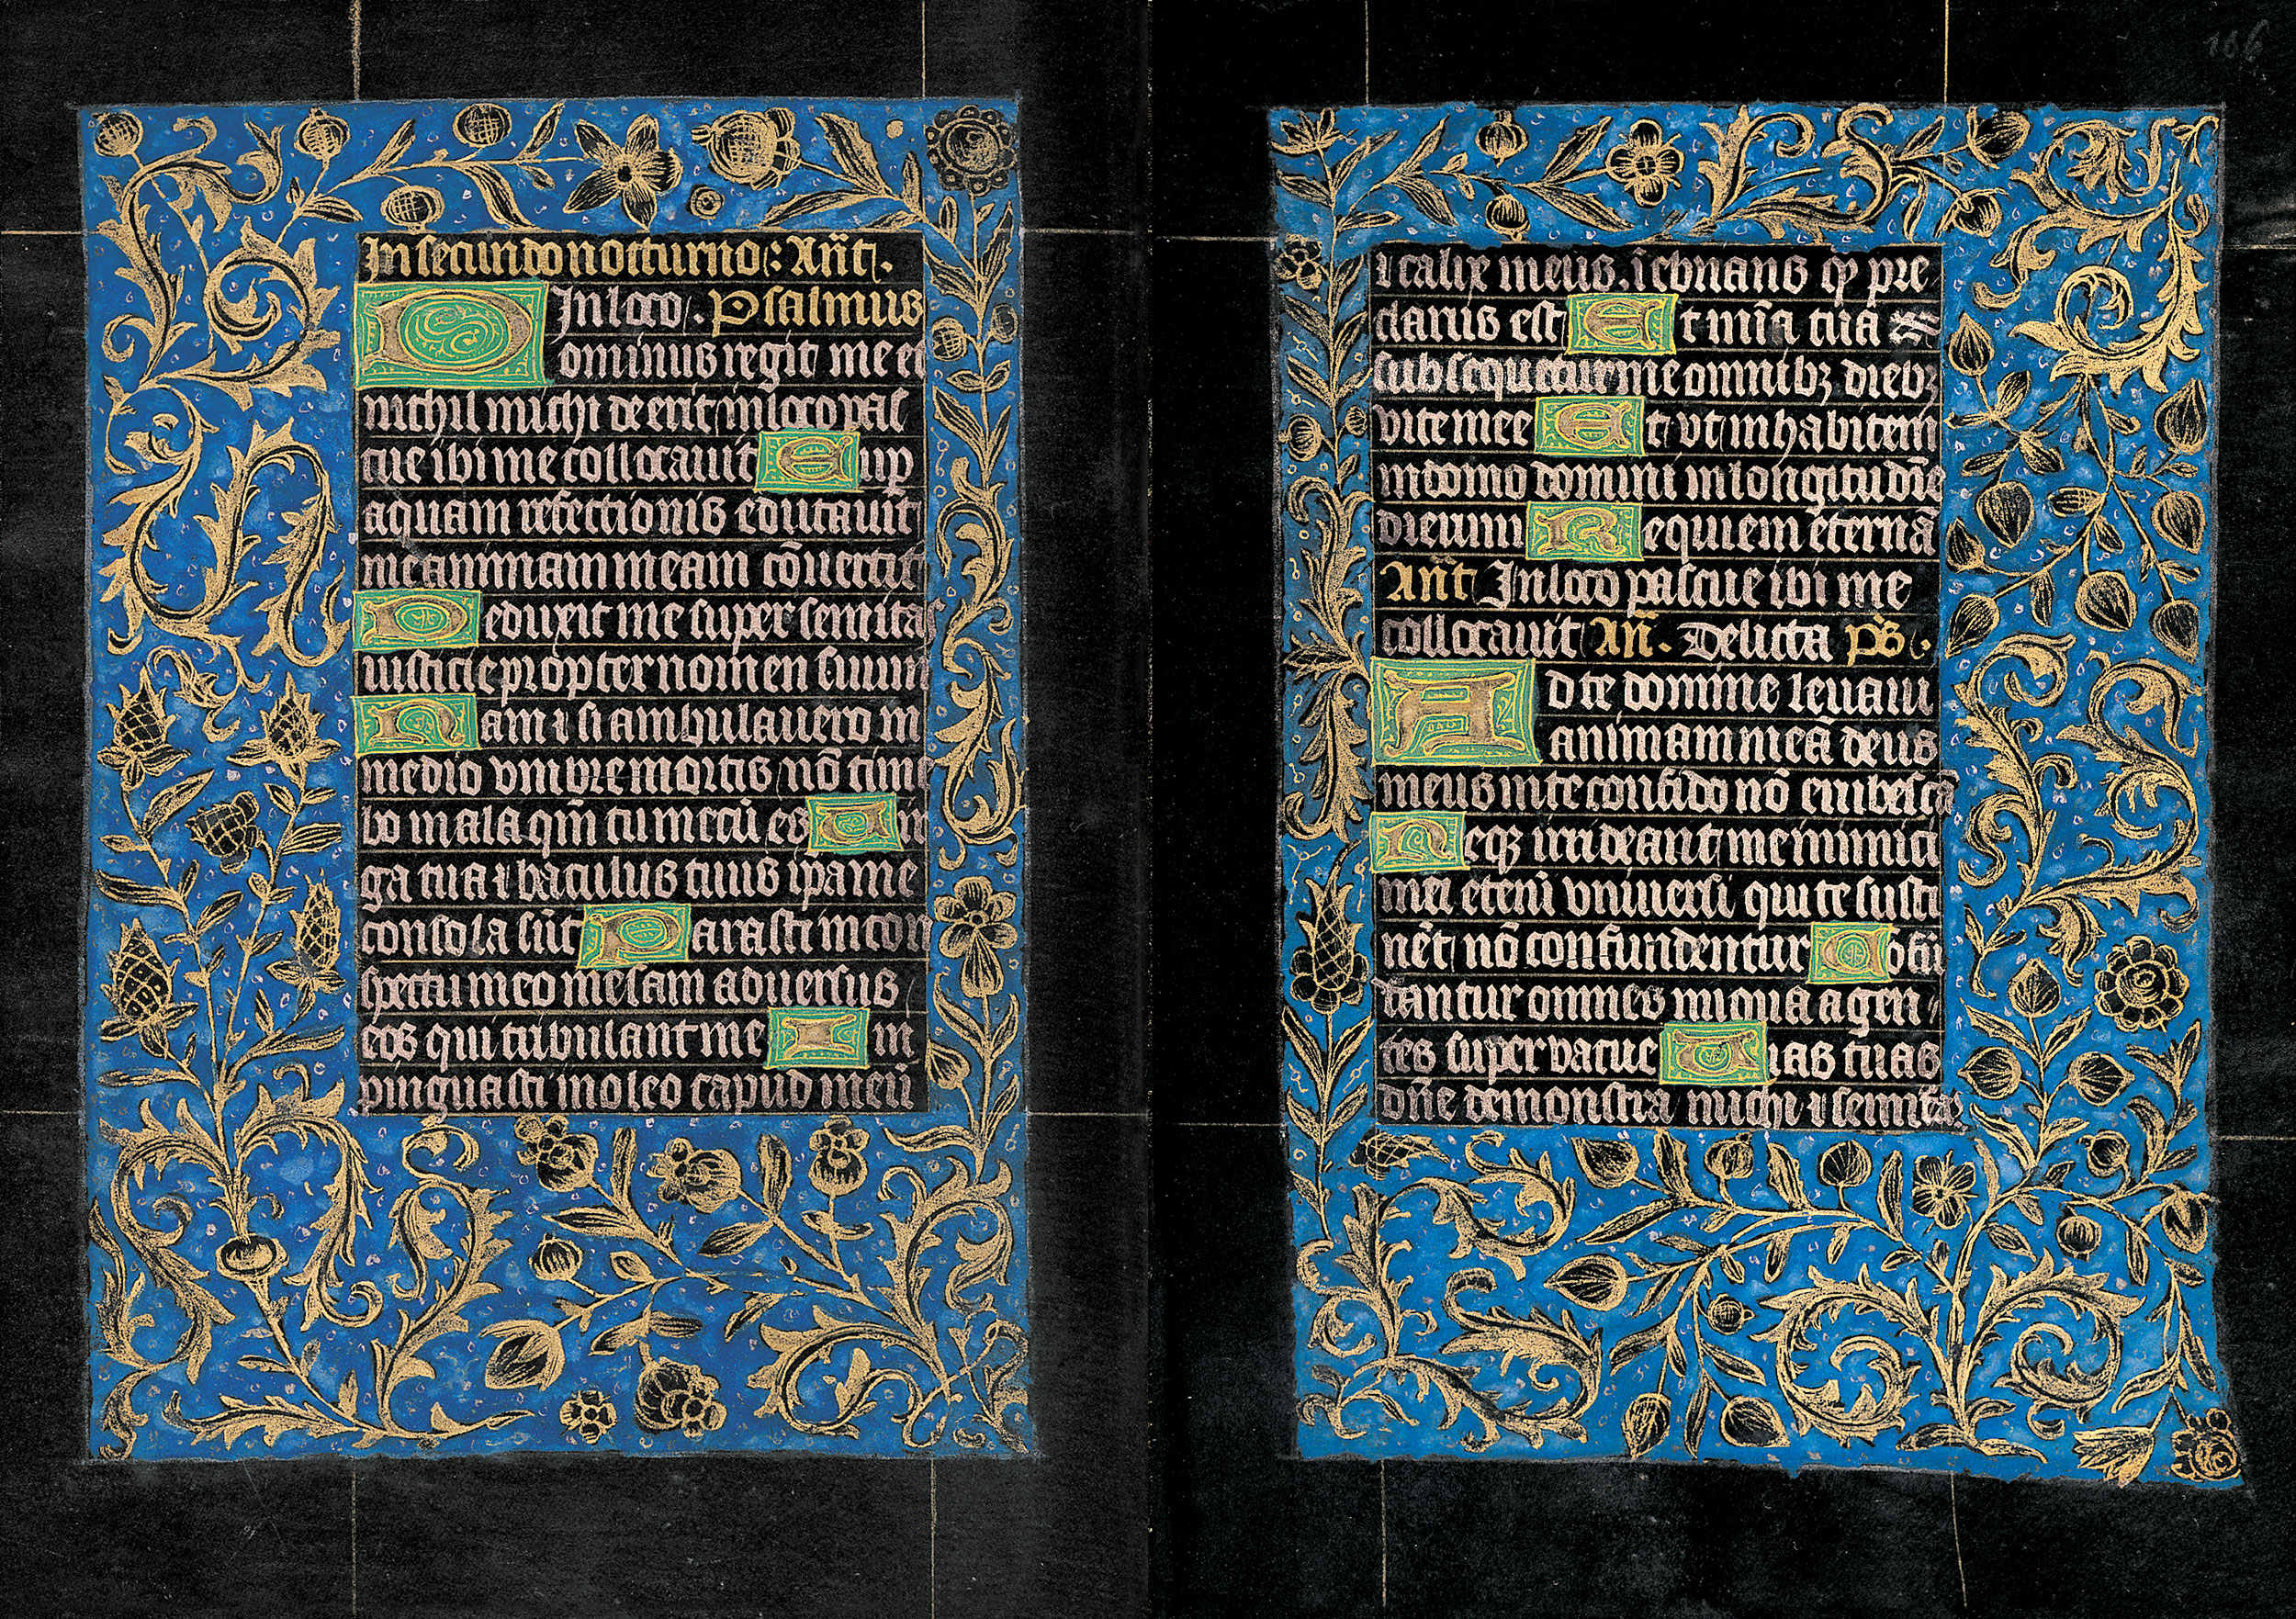 In secundo nocturno : Añt .
In loco . Psalmus
Dominus regit me et
nichil michi deerit in loco pas
cue ibi me collocauit Sup
aquam refectionis educauit
me animam meam cōuertit
Deduxit me super semitas
iusticie propter nomen suum
Nam ⁊ si ambulauero in
medio vmbre mortis nō time
bo mala qm̄ tu mecū es Uir
ga tua ⁊ baculus tuus ip̄a me
consola sūt Parasti in con
spectu meo mesam aduersus
eos qui tribulant me Im
pinguasti in oleo capud meū
166
⁊ calix meus īebrians q̄ pre
clarus est Et mīa tua
subsequetur me omnibꝫ diebꝫ
vite mee Et vt inhabitem
in domo domini in longitudīe
dierum Requiem eternā
Añt In loco pascue ibi me
collocauit Añ. Delicta pš .
Ad te domine leuaui
animam meā deus
meus in te confido nō erubescā
Neqꝫ irrideant me inimici
mei etenī vniuersi qui te susti
nēt nō confundentur Cōfū
dantur omnes iniqua agen
tes superuacue Uias tuas
dñe demonstra michi ⁊ semitas